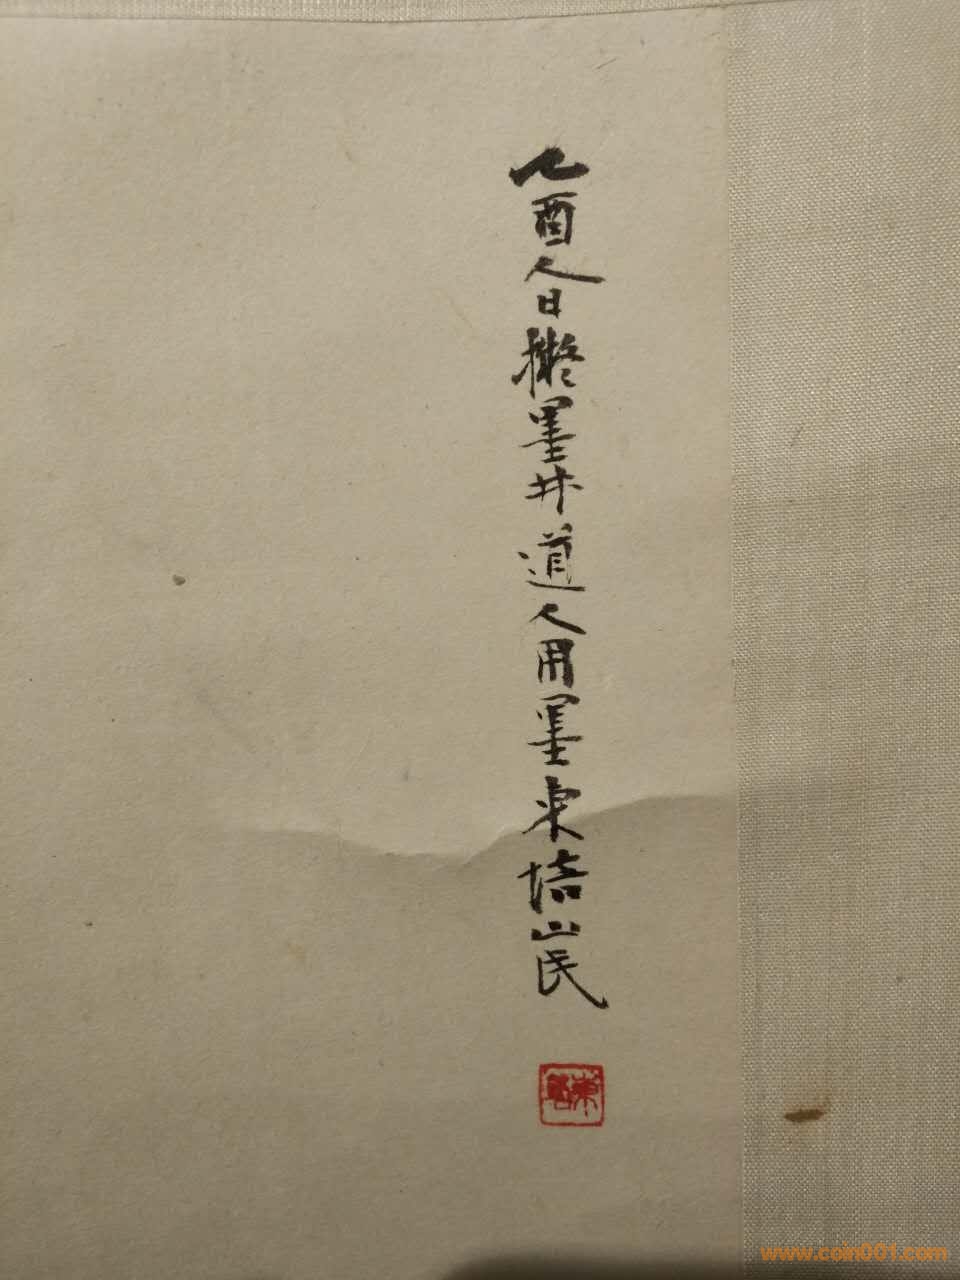 乙酉人日擬墨井道人用墨東培山民
東培
www.coin001.com